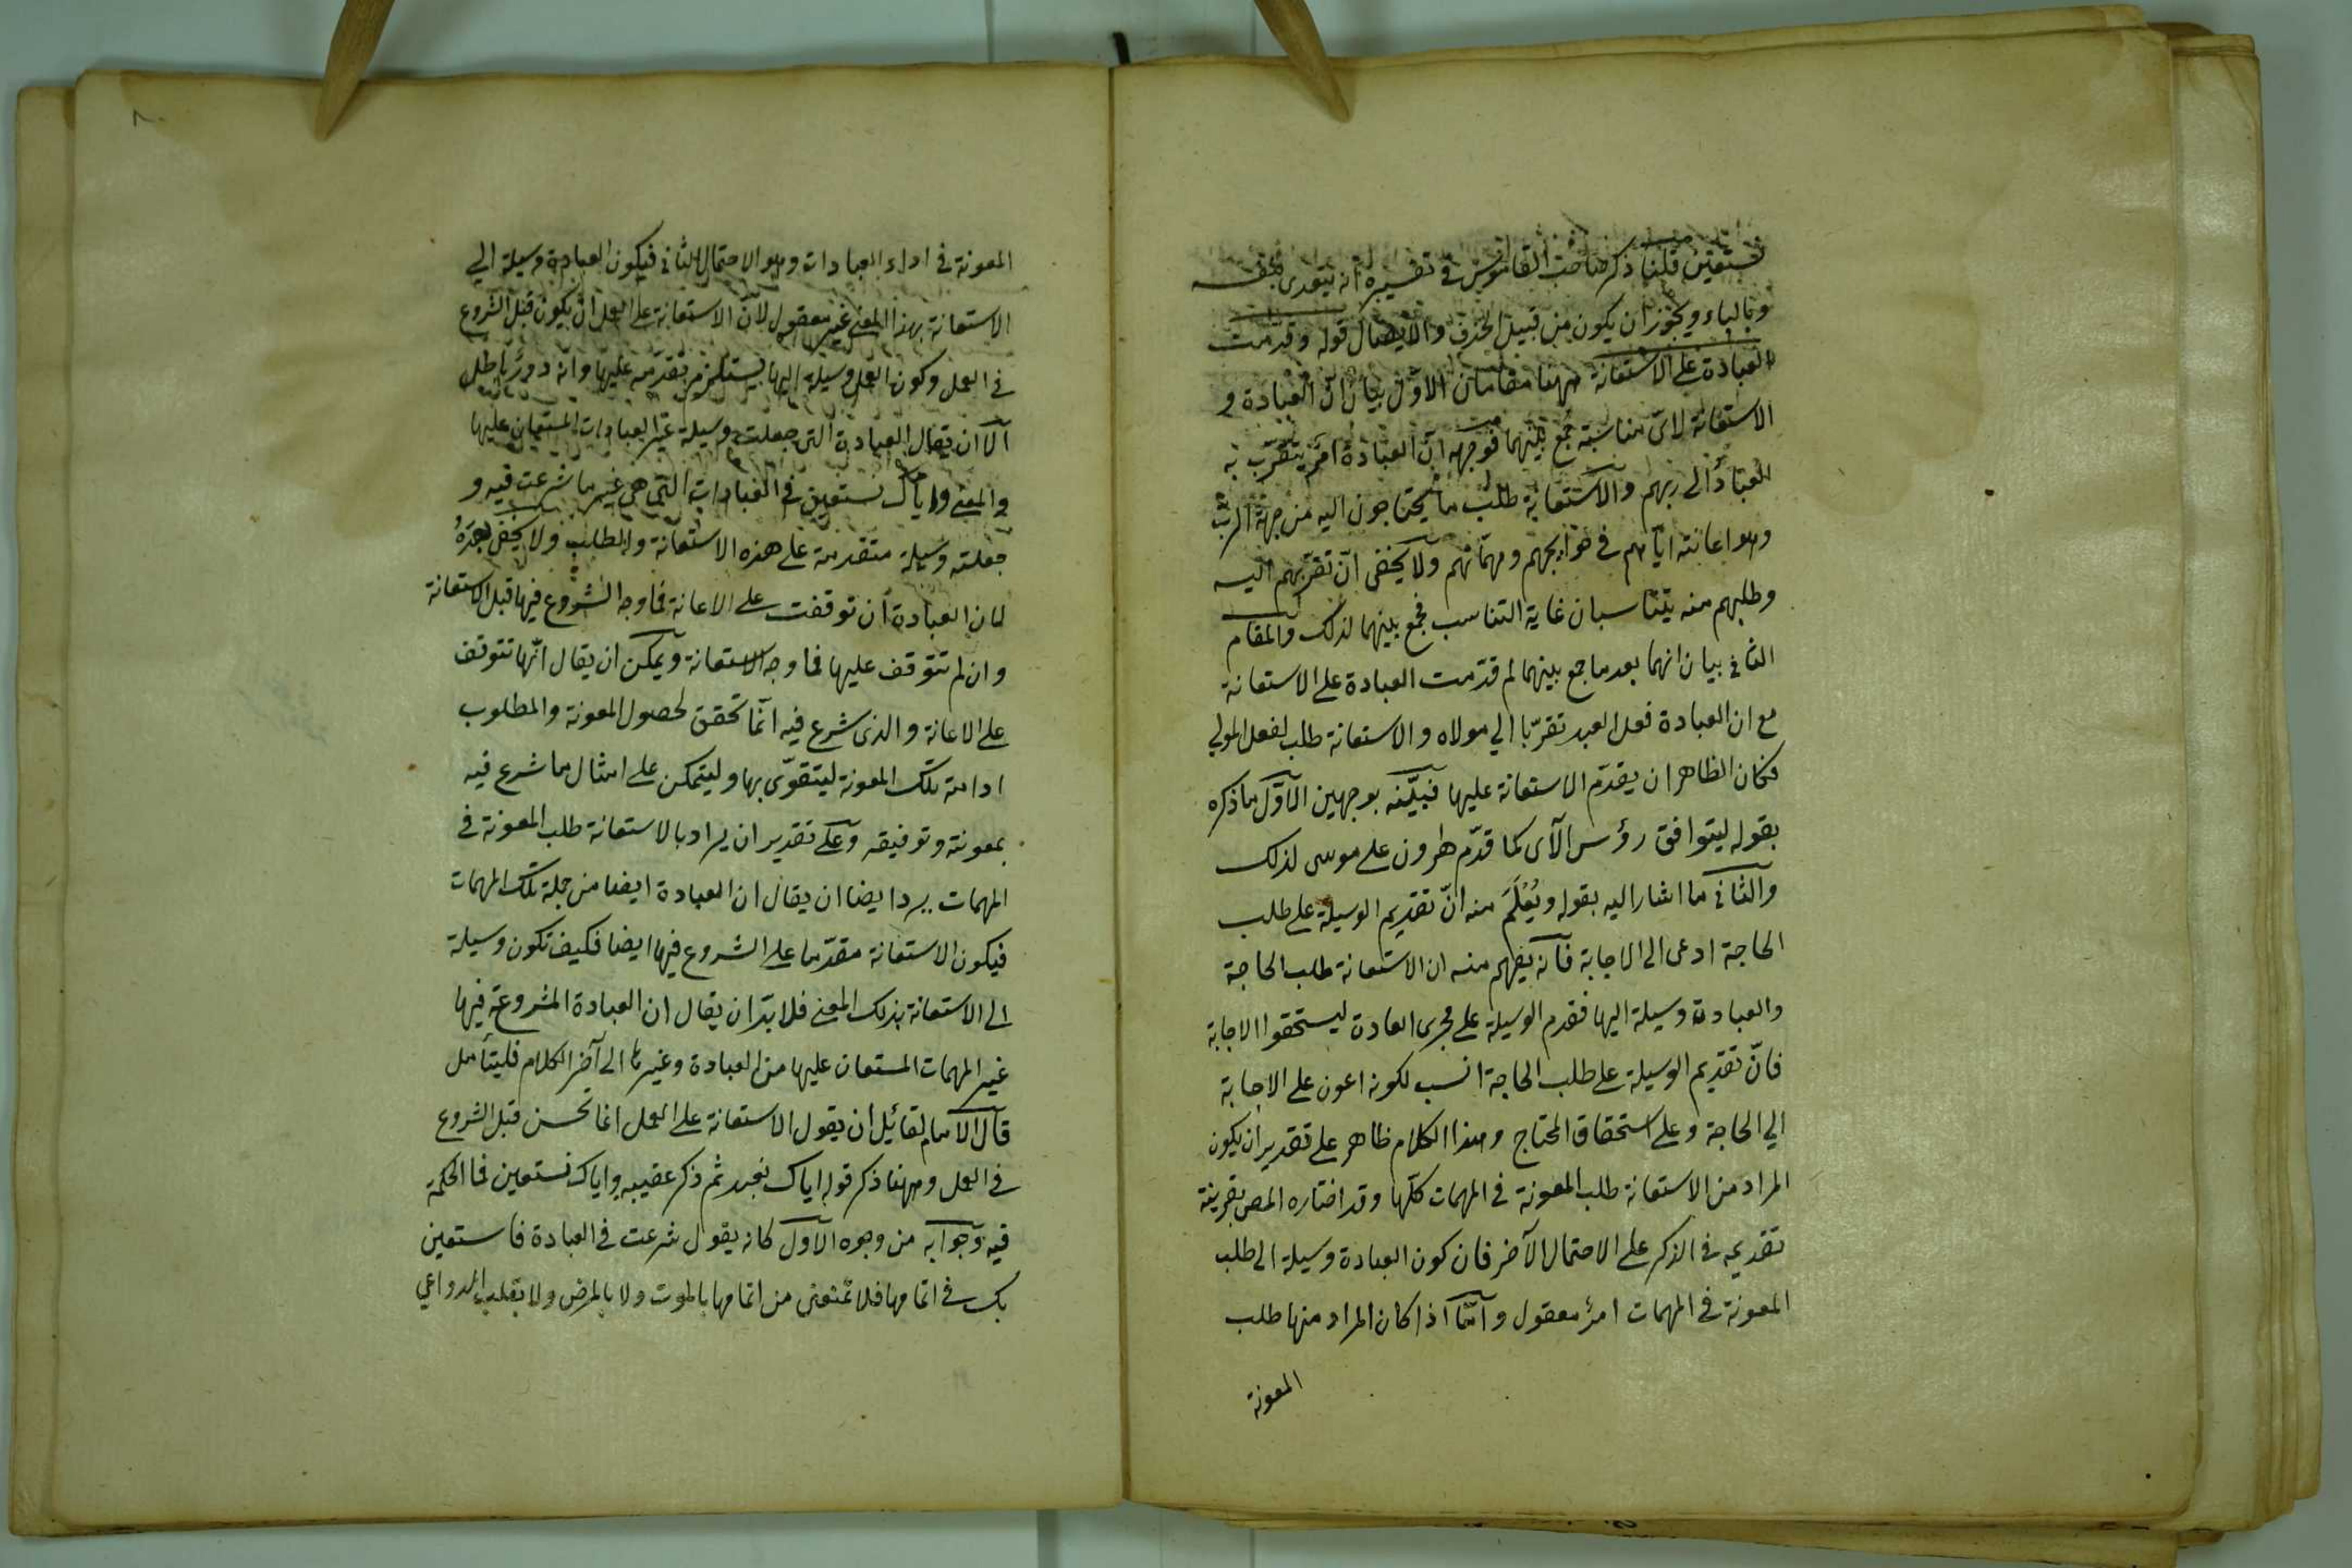 نستعين قلنا ذكر صاحب القاموس في تفسيره انه يتعدى بنفسه
وبالباء ويجوز ان يكون من قبيل الحذف والايصال قوله وقدمت
العبادة على الاستعانة ههنا مقامان الاوّل بيان ان العبادة و
الاستعانة لاىّ مناسبة جمع بينهما فوجهه انّ العبادة امر يتقرّب به
العباد الى ربهم والاستعانة طلب ما يحتاجون اليه من جهة الربّ
وهو اعانته ايّاهم في حوايجهم ومهمّاتهم ولا يخفى انّ تقرّبهم اليه
وطلبهم منه يتناسبان غاية التناسب فجمع بينهما لذلك والمقام
الثاني بيان انهما بعد ما جمع بينهما لم قدّمت العبادة على الاستعانة
مع ان العبادة فعل العبد تقرّبا الي مولاه والاستعانة طلب لفعل المولي
فكان الظاهر ان يقدّم الاستعانة عليها فبيّنه بوجهين الاوّل ما ذكره
بقوله ليتوافق رؤس الآى كما قدّم هرون على موسى لذلك
والثاني ما اشار اليه بقوله ويُعْلَمَ منه انّ تقديم الوسيلة على طلب
الحاجة ادعى الى الاجابة فانه يفهم منه ان الاستعانة طلب الحاجة
والعبادة وسيلة اليها فقدم الوسيلة على مجرى العادة ليستحقوا الاجابة
فانّ تقديم الوسيلة على طلب الحاجة انسب لكونه اعون على الاجابة
الي الحاجة وعلى استحقاق المحتاج وهذا الكلام ظاهر على تقدير ان يكون
المراد من الاستعانة طلب المعونة في المهمات كلّها وقد اختاره المص بقرينة
تقديمه في الذكر على الاحتمال الآخر فان كون العبادة وسيلة الى طلب
المعونة في المهمات امرٌ معقول وامّا اذا كان المراد منها طلب
المعونة
٨
المعونة في اداء العبادات وهو الاحتمال الثاني فيكون العبادة وسيلة الي
الاستعانة بهذا المعنى غير معقول لانّ الاستعانة على العمل ان يكون قبل الشروع
في العمل وكون العمل وسيلة اليها يستلزم تقدّمه عليها وانه دورٌ باطل
الّا ان يقال العبادة التى جعلت وسيلة غير العبادات المستعان عليها
والمعنى واياك نستعين في العبادات التى هى غير ما شرعت فيه و
جعلته وسيلة متقدمة على هذه الاستعانة والطلب ولا يخفى بعدهُ
لان العبادة ان توقفت على الاعانة فما وجه الشروع فيها قبل الاستعانة
وان لم تتوقف عليها فما وجه الاستعانة ويمكن ان يقال انّها تتوقف
على الاعانة والذى شرع فيه انّما تحقق لحصول المعونة والمطلوب
ادامة تلك المعونة ليتقوّى بها وليتمكن على امثال ما شرع فيه
بمعونته وتوفيقه وعلى تقدير ان يراد بالاستعانة طلب المعونة في
المهمات يرد ايضا ان يقال ان العبادة ايضا من جملة تلك المهمات
فيكون الاستعانة مقدّما على الشروع فيها ايضا فكيف تكون وسيلة
الى الاستعانة بذلك المعنى فلا بدّ ان يقال ان العبادة المشروعة فيها
غير المهمات المستعان عليها من العبادة وغيرها الى آخر الكلام فليتأمل
قال الامام لقائل ان يقول الاستعانة على العمل انما تحسن قبل الشروع
في العمل وههنا ذكر قوله اياك نعبد ثم ذكر عقيبه واياك نستعين فما الحكمة
فيه وجوابه من وجوه الاوّل كانه يقول شرعت في العبادة فاستعين
بك في اتمامها فلا تمنعنى من اتمامها بالموت ولا بالمرض ولا بقلب الدواعي